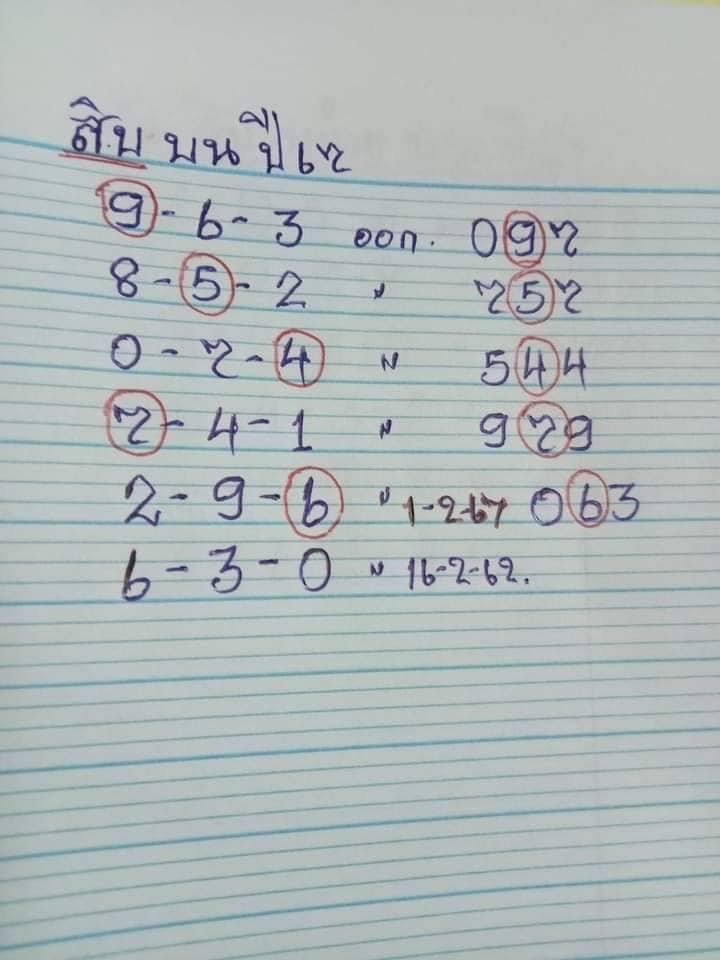 สิบ บน ปี 67
9 - 6 - 3 ออก. 097
8 - 5 - 2 " 757
0 - 7 - 4 " 544
7 - 4 - 1 " 979
2 - 9 - 6 " 1-2-67 063
6 - 3 - 0 " 16-2-62.